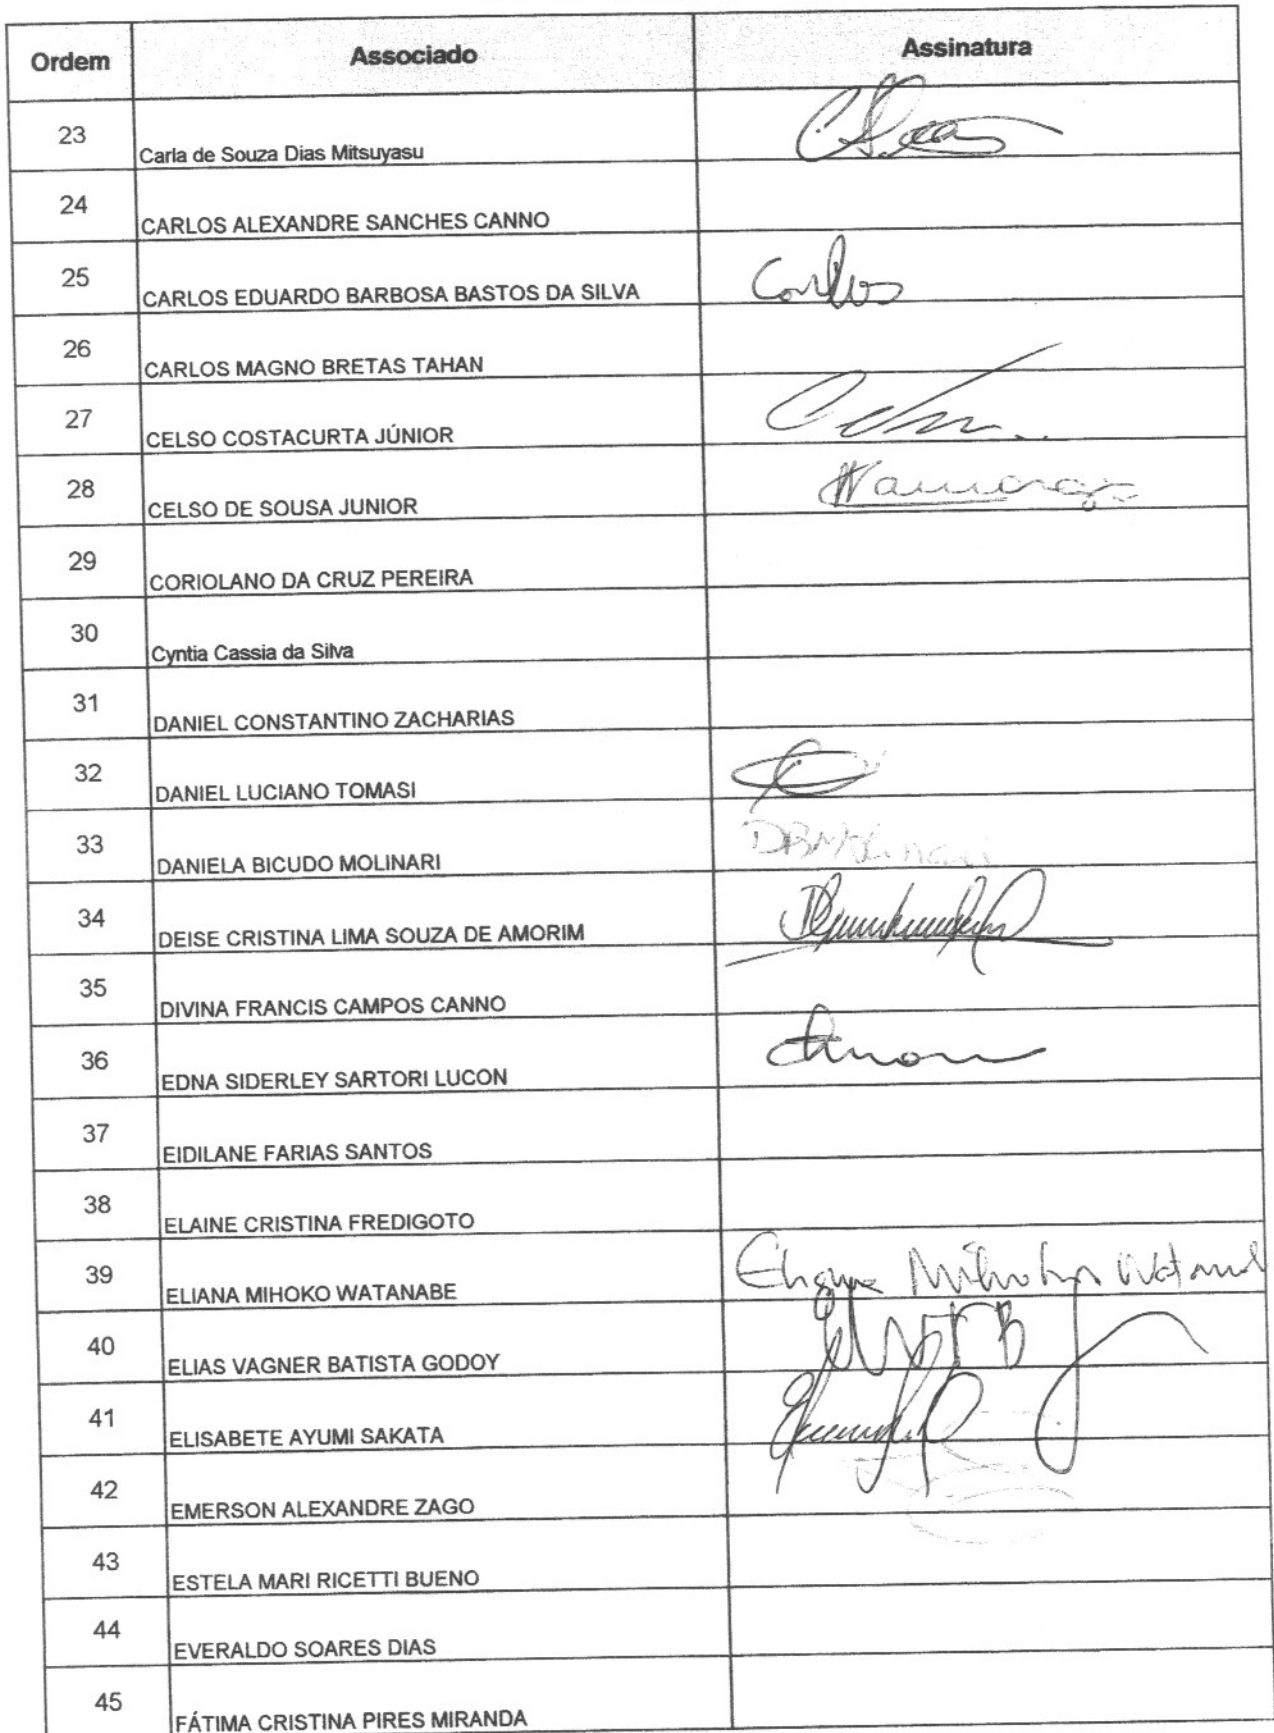 Ordem Associado Assinatura
23 Carla de Souza Dias Mitsuyasu
24 CARLOS ALEXANDRE SANCHES CANNO
25 CARLOS EDUARDO BARBOSA BASTOS DA SILVA Carlos
26 CARLOS MAGNO BRETAS TAHAN
27 CELSO COSTACURTA JÚNIOR
28 CELSO DE SOUSA JUNIOR
29 CORIOLANO DA CRUZ PEREIRA
30 Cyntia Cassia da Silva
31 DANIEL CONSTANTINO ZACHARIAS
32 DANIEL LUCIANO TOMASI
33 DANIELA BICUDO MOLINARI DBMolinari
34 DEISE CRISTINA LIMA SOUZA DE AMORIM
35 DIVINA FRANCIS CAMPOS CANNO
36 EDNA SIDERLEY SARTORI LUCON
37 EIDILANE FARIAS SANTOS
38 ELAINE CRISTINA FREDIGOTO
39 ELIANA MIHOKO WATANABE Eliana Mihoko
40 ELIAS VAGNER BATISTA GODOY
41 ELISABETE AYUMI SAKATA
42 EMERSON ALEXANDRE ZAGO
43 ESTELA MARI RICETTI BUENO
44 EVERALDO SOARES DIAS
45 FÁTIMA CRISTINA PIRES MIRANDA